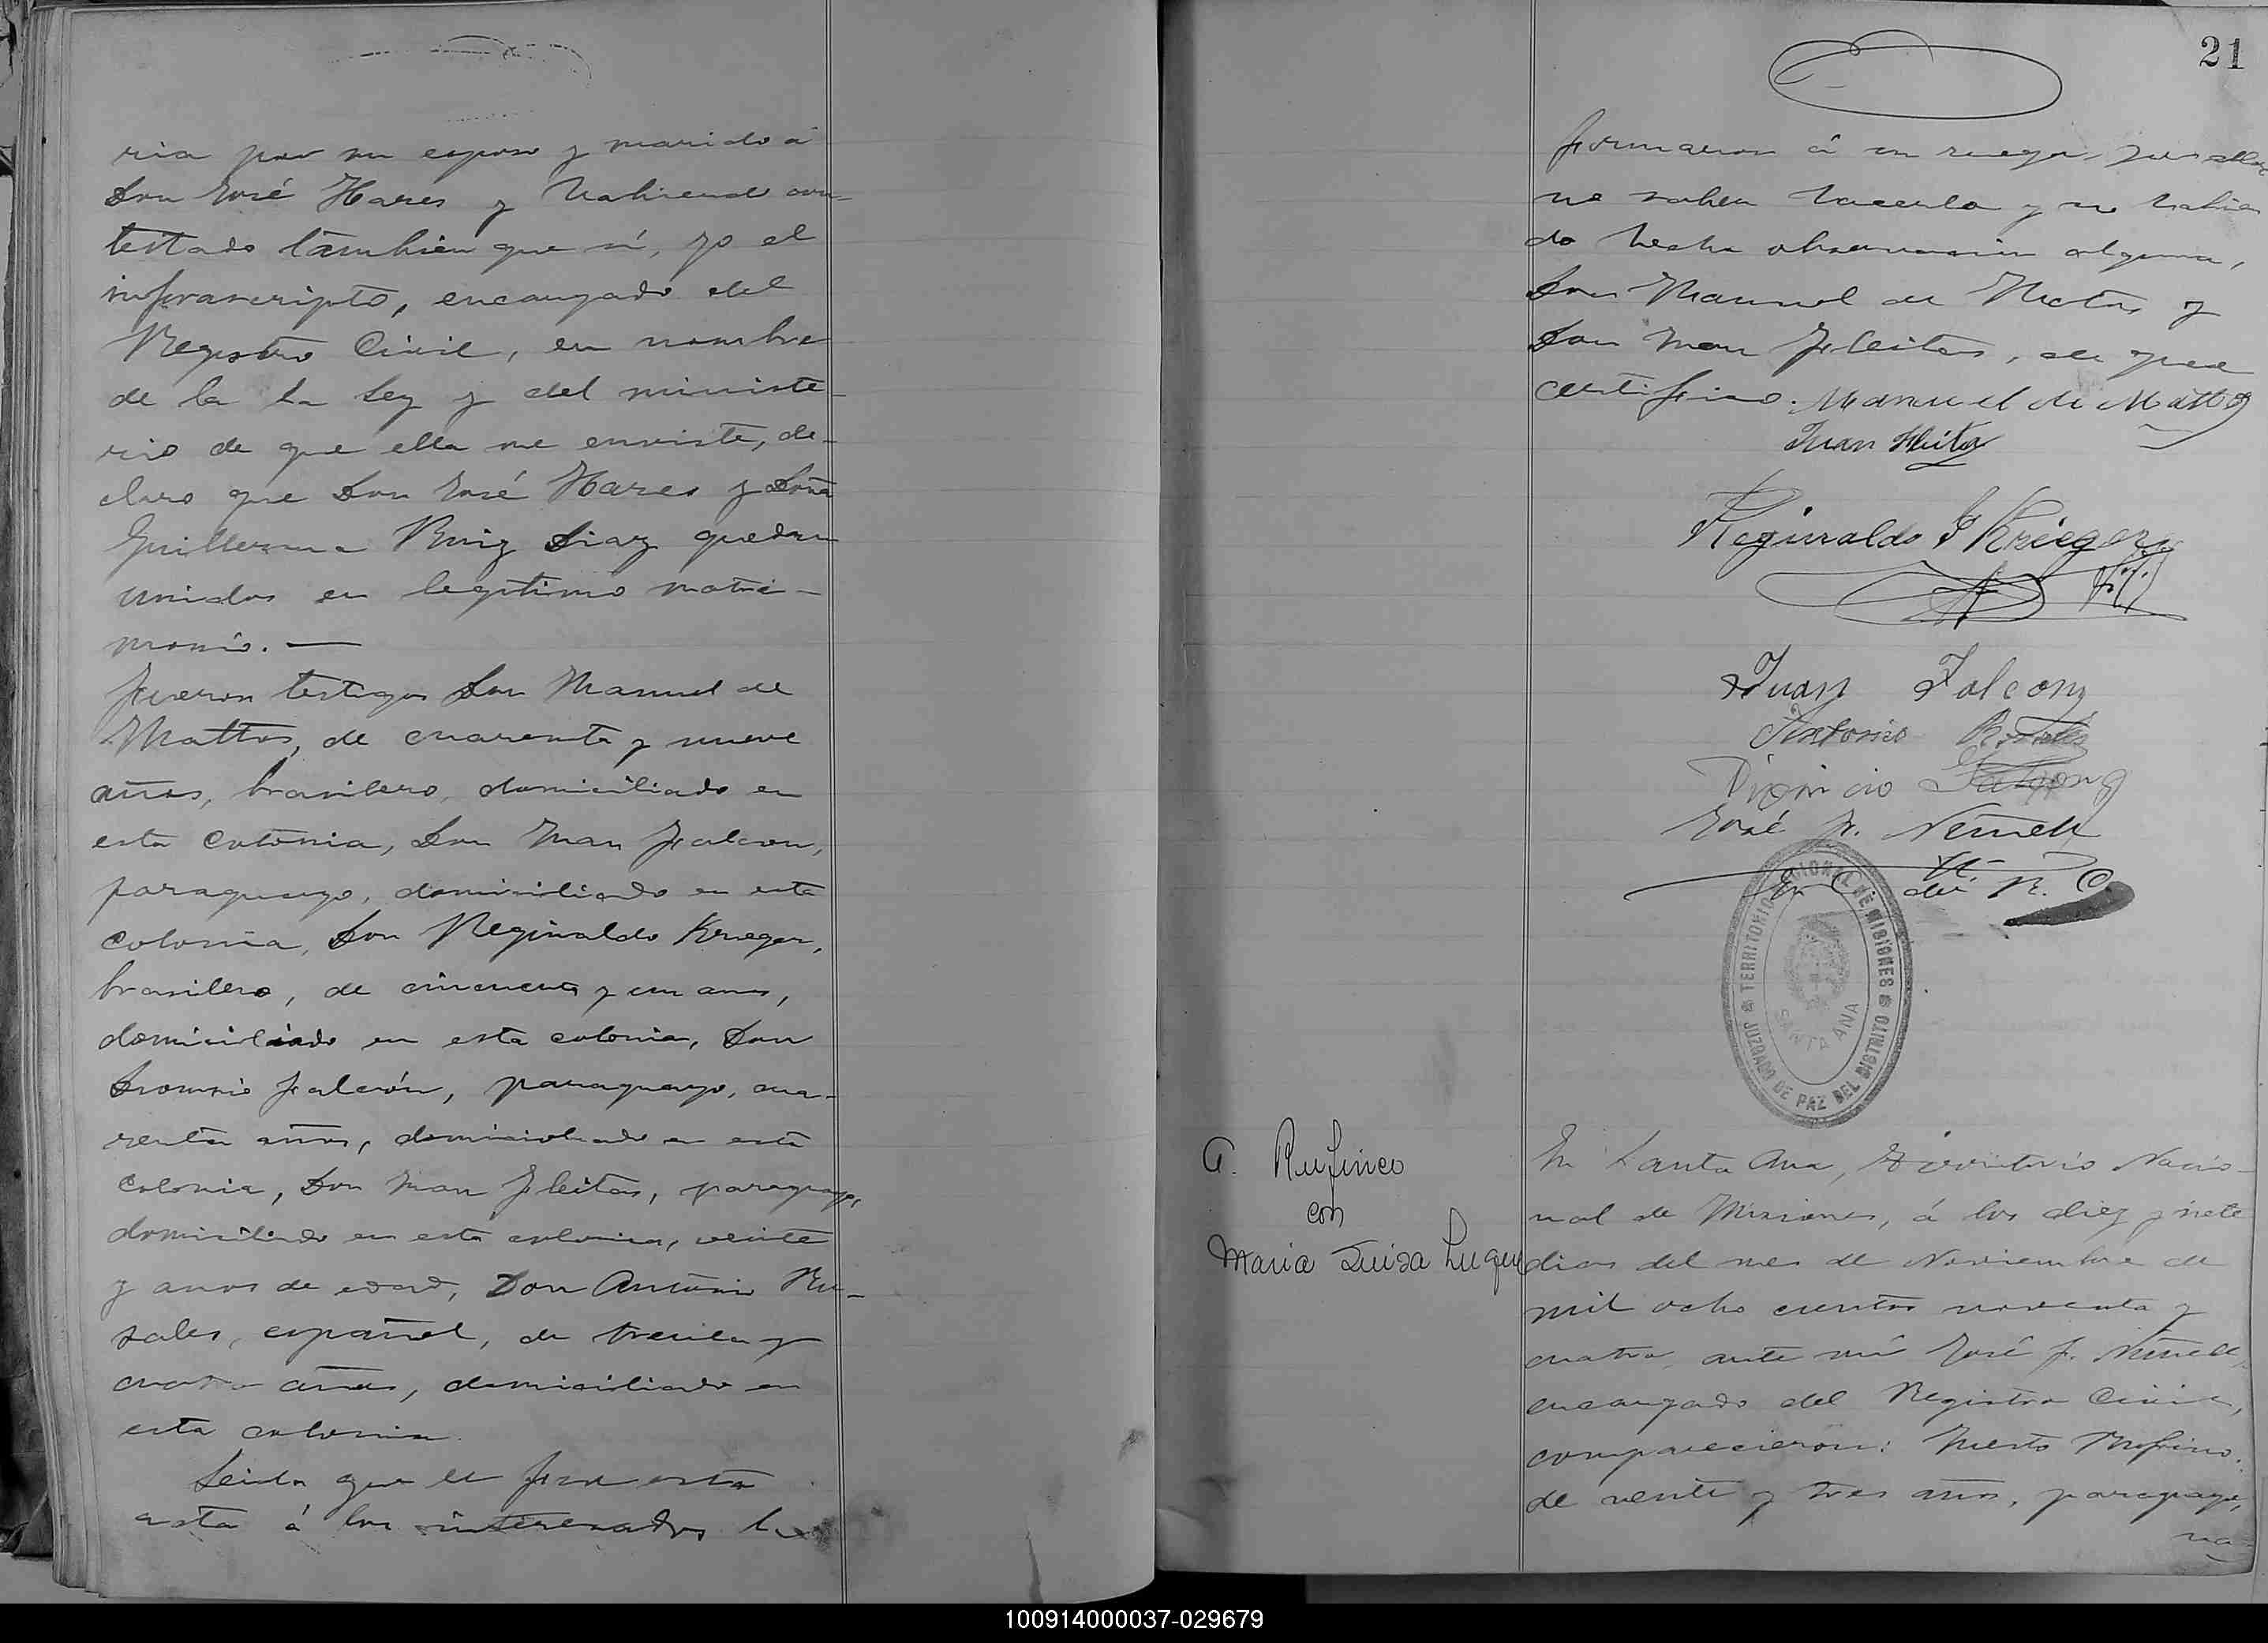 ria por su esposo y marido á
Don José Hares y habiendo con-
testado también que sí, yo el
infrascripto, encargado del
Registro Civil, en nombre
de la La Ley y del ministe-
rio de que ella me enviste, de-
claro que Don José Hares y Doña
Guillerma Ruiz Diaz quedan
unidos en legitimo matri-
monio. —
Fueron testigos Don Manuel de
Mattos, de cuarenta y nueve
años, brasilero, domiciliado en
esta Colonia, Don Juan Falcon,
paraguayo, domiciliado en esta
Colonia, Don Reginaldo Krieger,
brasilero, de cincuenta y un anos,
domiciliado en esta colonia, Don
Falcón, paraguayo, cua-
renta años, domiciliado en esta
Colonia, Don Juan Fleitas, paraguayo,
domiciliado en esta colonia, veinte
y anos de edad, Don Antonio Ro-
sales, español, de treinta y
cuatro años, domiciliado en
esta colonia.
Leida que le fue esta
acta á los interesados la
21
firmaron á su ruego por ellos
no saben hacerlo y no habien
do hecho observación alguna,
Don Manuel de Mattos y
Don Juan Fleitas, de que
certifico. Manuel de Mattos
Juan Fleitas
Reginaldo F Krieger
Juan Falcon
Antonio
Falcon
José F. Németh
Enc. del R. C.
TERRITORIO NACIONAL DE MISIONES
JUZGADO DE PAZ DEL DISTRITO
SANTA ANA
G. Rufineo
con
Maria Luisa Luque
En Santa Ana, Territorio Nacio-
nal de Misiones, á los diez y siete
dias del mes de Noviembre de
mil ocho cientos noventa y
cuatro, ante mí José F. Németh,
encargado del Registro Civil,
comparecieron: Rufino,
de veinte y tres años, paraguayo,
100914000037-029679